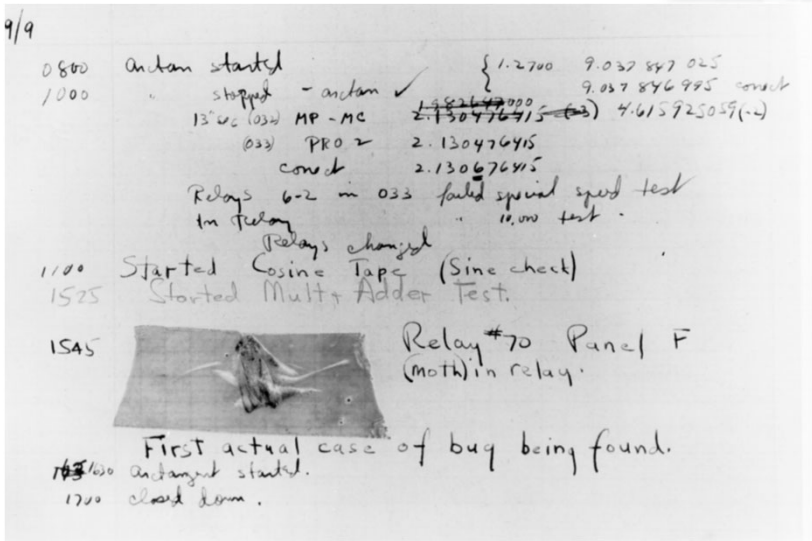 9/9
0800 arctan started { 1.2700 9.037 847 025
1000 " stopped - arctan ✓ 9.037 846 995 conect
13" sec (032) MP - MC 2.130476415 (-3) 4.615925059(-2)
(033) PRO 2 2.130476415
conect 2.130676415
Relays 6-2 in 033 failed special speed test
In Relay " 10,000 test .
Relays changed
1100 Started Cosine Tape (Sine check)
1525 Started Mult + Adder Test.
1545 Relay #70 Panel F
(moth) in relay.
First actual case of bug being found.
1630 arctangent started.
1700 closed down .